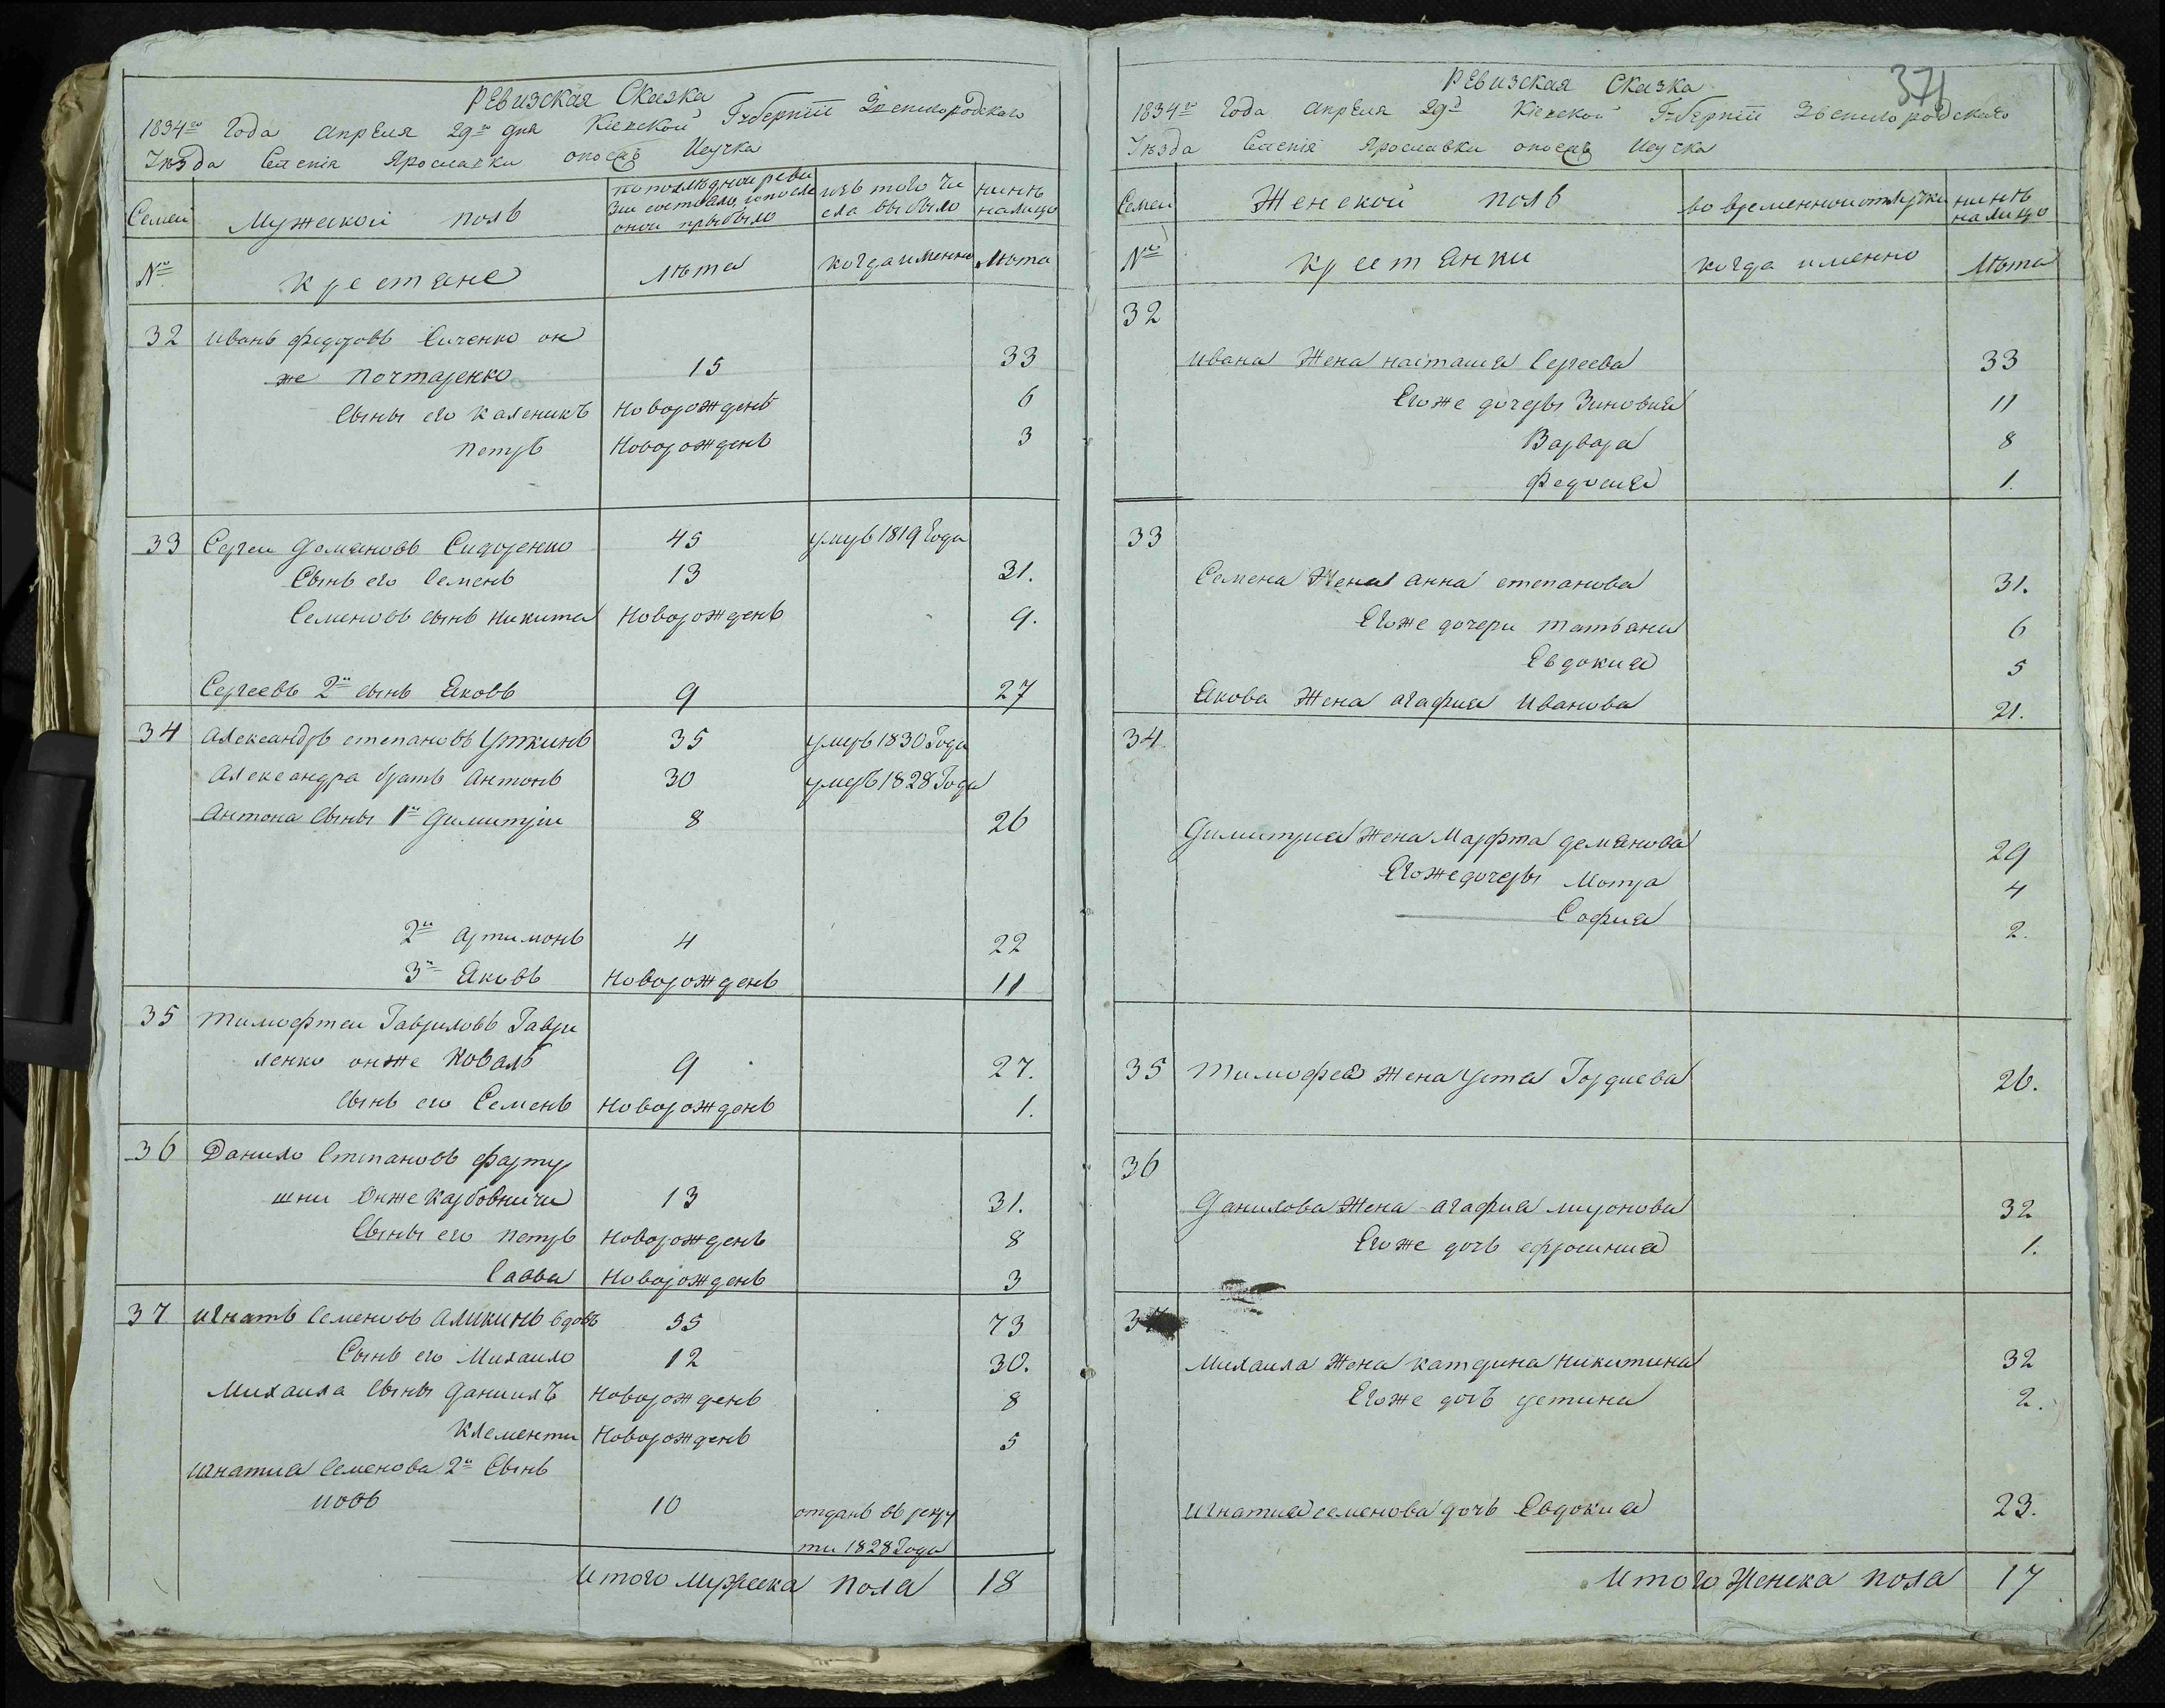 Ревизская Сказка
1834го Года Апреля 29го дня Киевской Губернiи Звенигородскаго
Уѣзда Селенiя Ярославки
Семеи
Мужеской полъ
по последнои реви
зiи состояло, и после
онои прибыло
изъ того чи
сла выбыло
нинѣ
налицо
№
крестяне
лѣта
когда именно
лѣта
32 Иванъ Федоровъ Сиченко он
же Почтаренко 15 33
Сыны его Каленикъ Новорожденъ 6
Петръ Новорожденъ 3
33 Сергеи Демяновъ Сидоренко 45 умеръ 1819 Года
Сынъ его Семенъ 13 31.
Семеновъ сынъ Никита Новорожденъ 9.
Сергеевъ 2й сынъ Яковъ 9 27
34 Александръ Степановъ Уткинъ 35 умеръ 1830 Года
Александра братъ Антонъ 30 умеръ 1828 Года
Антона Сыны 1й Димитрiи 8 26
2й Артимонъ 4 22
3й Яковъ Новорожденъ 11
35 Тимофтеи Гавриловъ Гаври
ленко онже Коваль 9 27.
Сынъ его Семенъ Новорожденъ 1.
36 Данило Степановъ Фарту
шни Онже Карбовничи 13 31.
Сыны его Петръ Новорожденъ 8
Савва Новорожденъ 3
37 Игнатъ Семеновъ Аликинъ вдовъ 55 73
Сынъ его Михаило 12 30.
Михаила Сыны Данiилъ Новорожденъ 8
Клементи Новорожденъ 5
Игнатия Семенова 2й Сынъ
Иовъ 10 отданъ въ рекру
ти 1828 Года
Итого мужеска пола 18
371
Ревизская Сказка
1834го Года Апреля 29го Киевской Губернiи Звенигородскаго
Уѣзда Селенiя Ярославки
Семеи
Женской полъ
во временнои отлучки
нинѣ
налицо
№
Крестянки
когда именно
Лѣта
32
Ивана Жена Настасия Сергеева 33
Егоже дочеры Зиновия 11
Варвара 8
Федосия 1.
33
Семена Жена Анна Степанова 31.
Егоже дочери Татьяна 6
Евдокия 5
Якова Жена Агафия Иванова 21.
34
Димитрия Жена Марфта Демянова 29
Егоже дочеры Мотра 4
София 2.
35 Тимофея Жена Устя Гордиева 26.
36
Данилова Жена Агафия Миронова 32
Егоже дочъ Ефросиния 1.
37
Михаила Жена Катерина Никитина 32
Егоже дочъ Устина 2.
Игнатия Семенова дочъ Евдокия 23.
Итого Женска пола 17